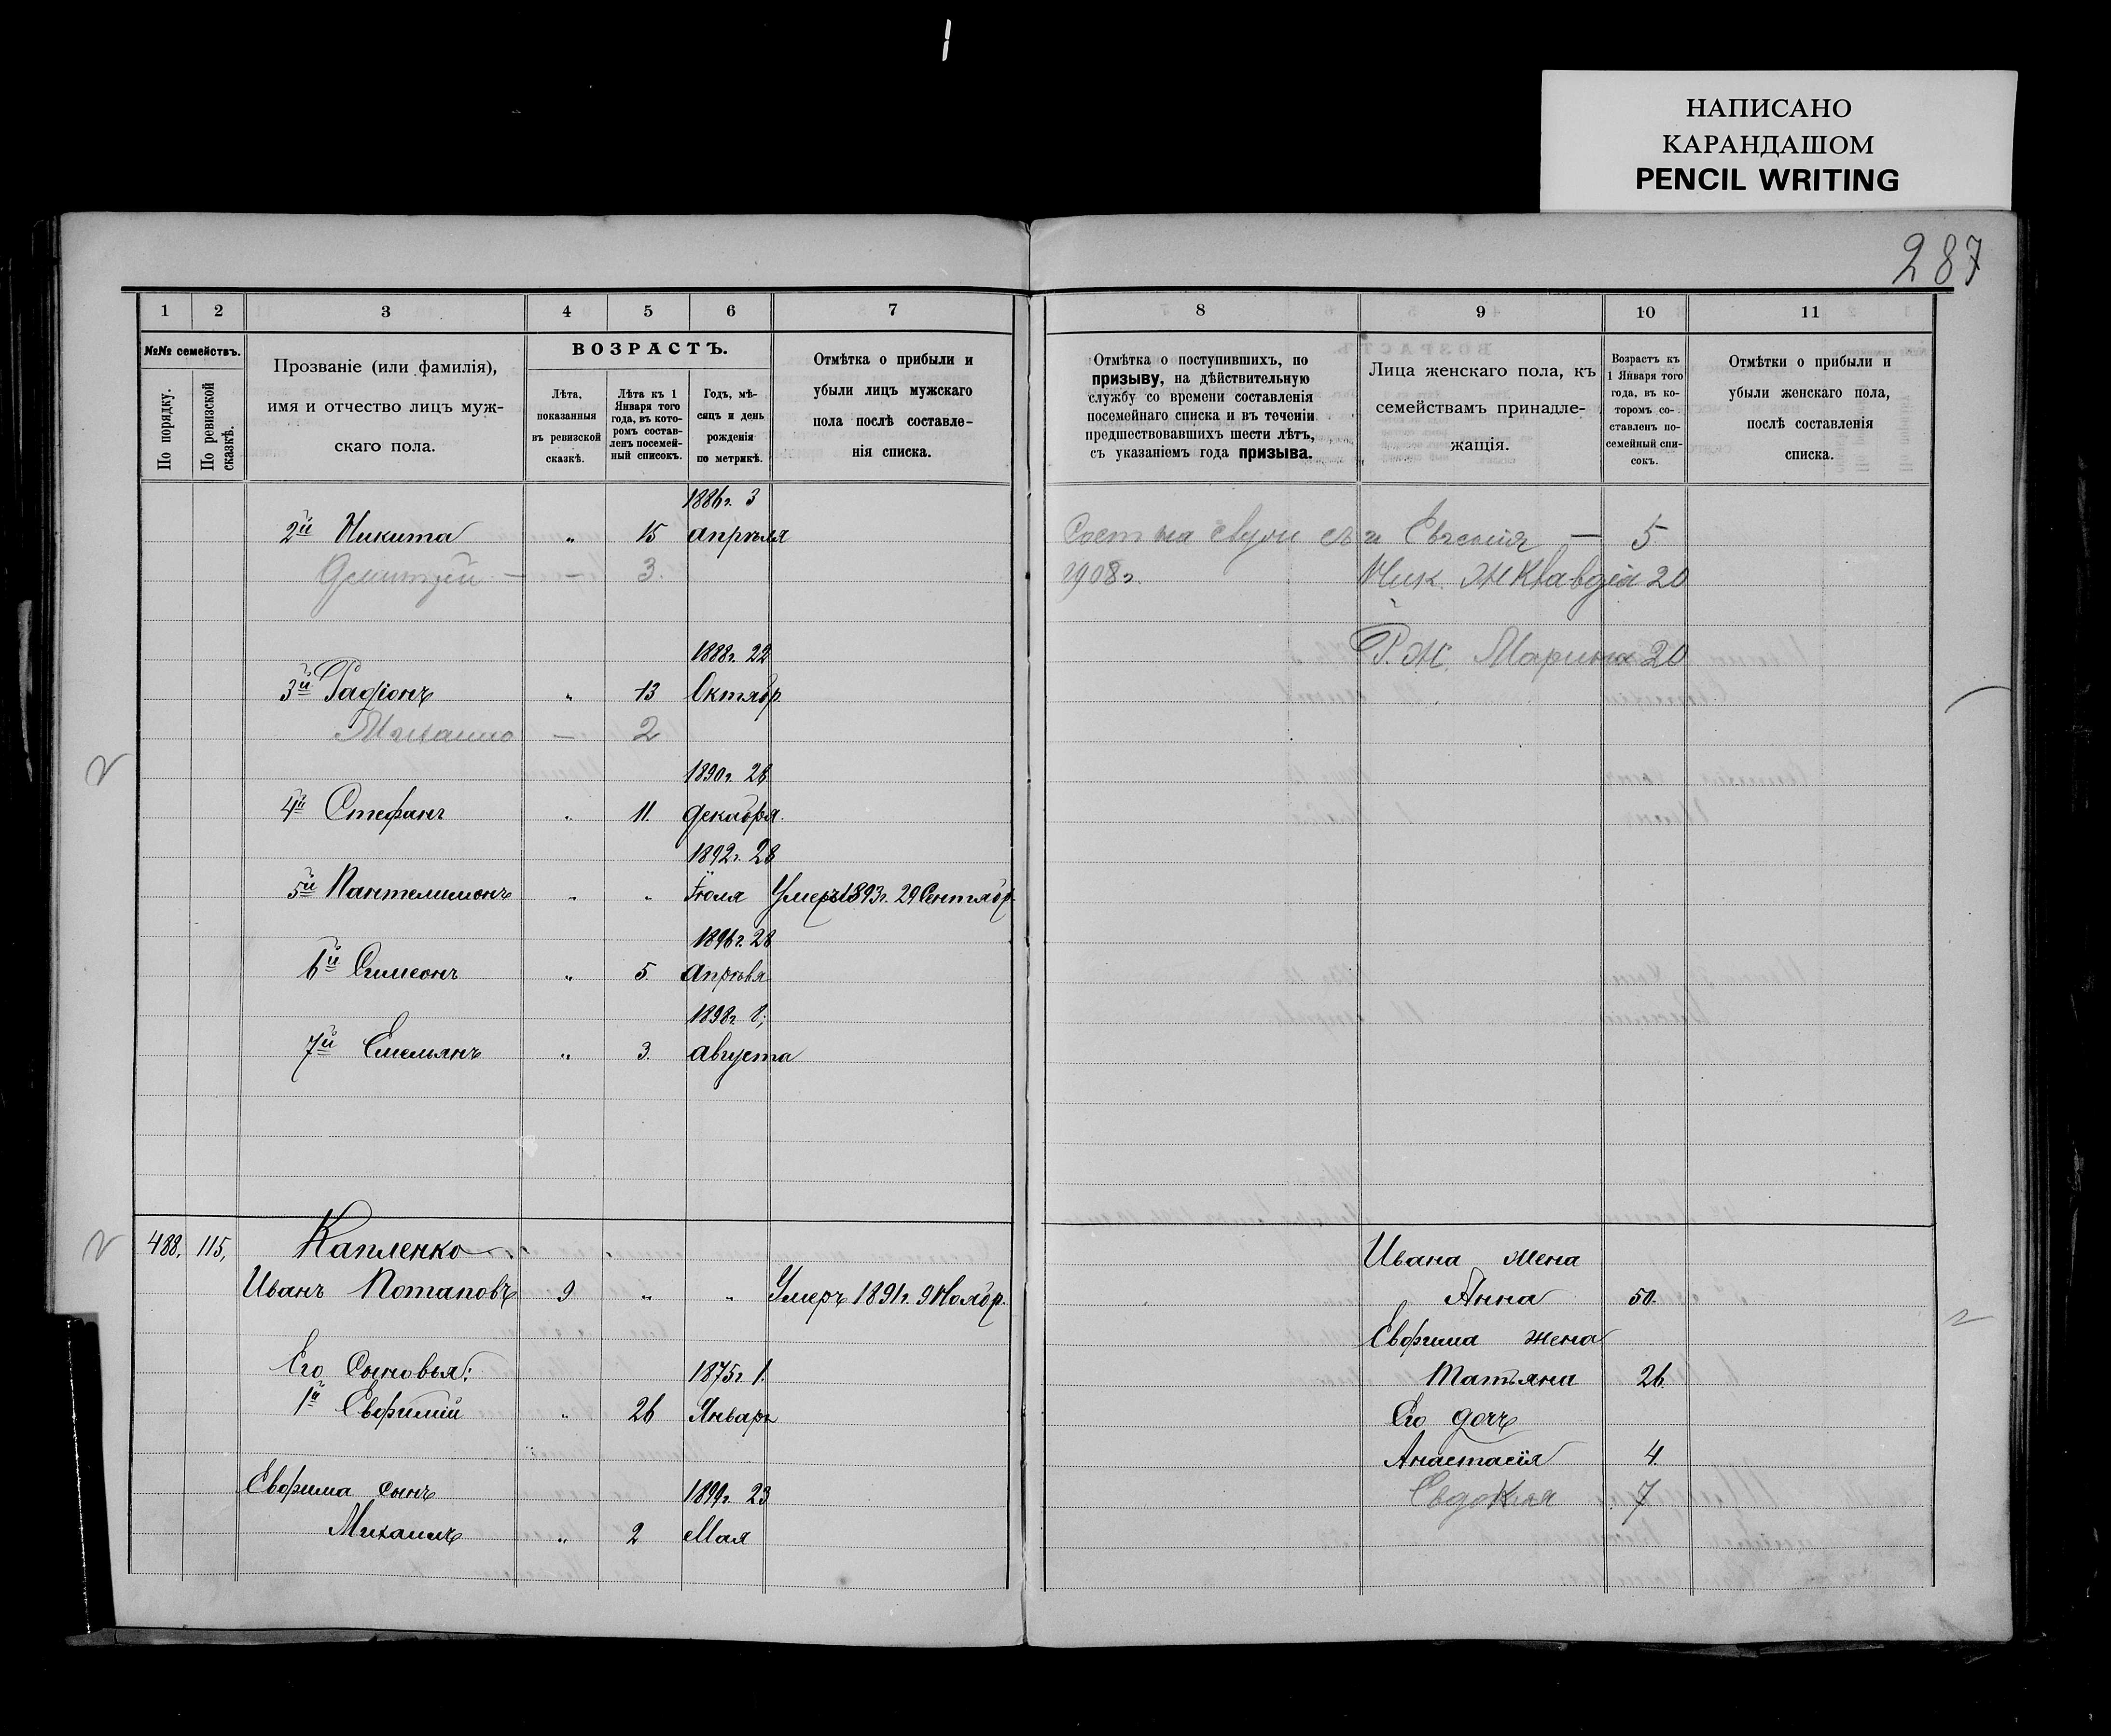 НАПИСАНО
КАРАНДАШОМ
PENCIL WRITING
287
1 2 3 4 5 6 7
№№ семействъ.
По порядку.
По ревизской сказкѣ.
Прозваніе (или фамилія),
имя и отчество лицъ муж-
скаго пола.
ВОЗРАСТЪ.
Лѣта,
показанныя
въ ревизской
сказкѣ.
Лѣта къ 1
Января того
года, въ кото-
ромъ состав-
ленъ посемей-
ный списокъ.
Годъ, мѣ-
сяцъ и день
рожденія
по метрикѣ.
Отмѣтка о прибыли и
убыли лицъ мужскаго
пола послѣ составле-
нія списка.
1886г. 3
2й Никита " 15 апрѣля
Дмитрій — — 3.
1888г. 22
3й Радіонъ " 13 Октябр.
Михаило — 2
1890г. 26
4й Стефанъ " 11. декабря.
1892г. 28
5й Пантелимонъ " " Іюля Умеръ 1893г. 29 Сентябр.
1896г. 28
6й Симеонъ " 5. апрѣля
1898г. 8;
7й Емельянъ " 3. августа
488, 115, Капленко
Иванъ Потаповъ 9 " " Умеръ 1891г. 9 Ноябр.
Его Сыновья: 1875г. 1.
1й Евфимій " 26 Января
Евфима сынъ 1899г. 23
Михаилъ " 2 Мая
8 9 10 11
Отмѣтка о поступившихъ, по
призыву, на дѣйствительную
службу со времени составленія
посемейнаго списка и въ теченіи
предшествовавшихъ шести лѣтъ,
съ указаніемъ года призыва.
Лица женскаго пола, къ
семействамъ принадле-
жащія.
Возрастъ къ
1 Января того
года, въ ко-
торомъ со-
ставленъ по-
семейный спи-
сокъ.
Отмѣтки о прибыли и
убыли женскаго пола,
послѣ составленія
списка.
— 5
1908г. Ник. Ж Клавдія 20
Р. Ж. Марина 20
Ивана жена
Анна 50.
Евфима жена
Татьяна 26.
Его дочь
Анастасія 4
Евдокия 7